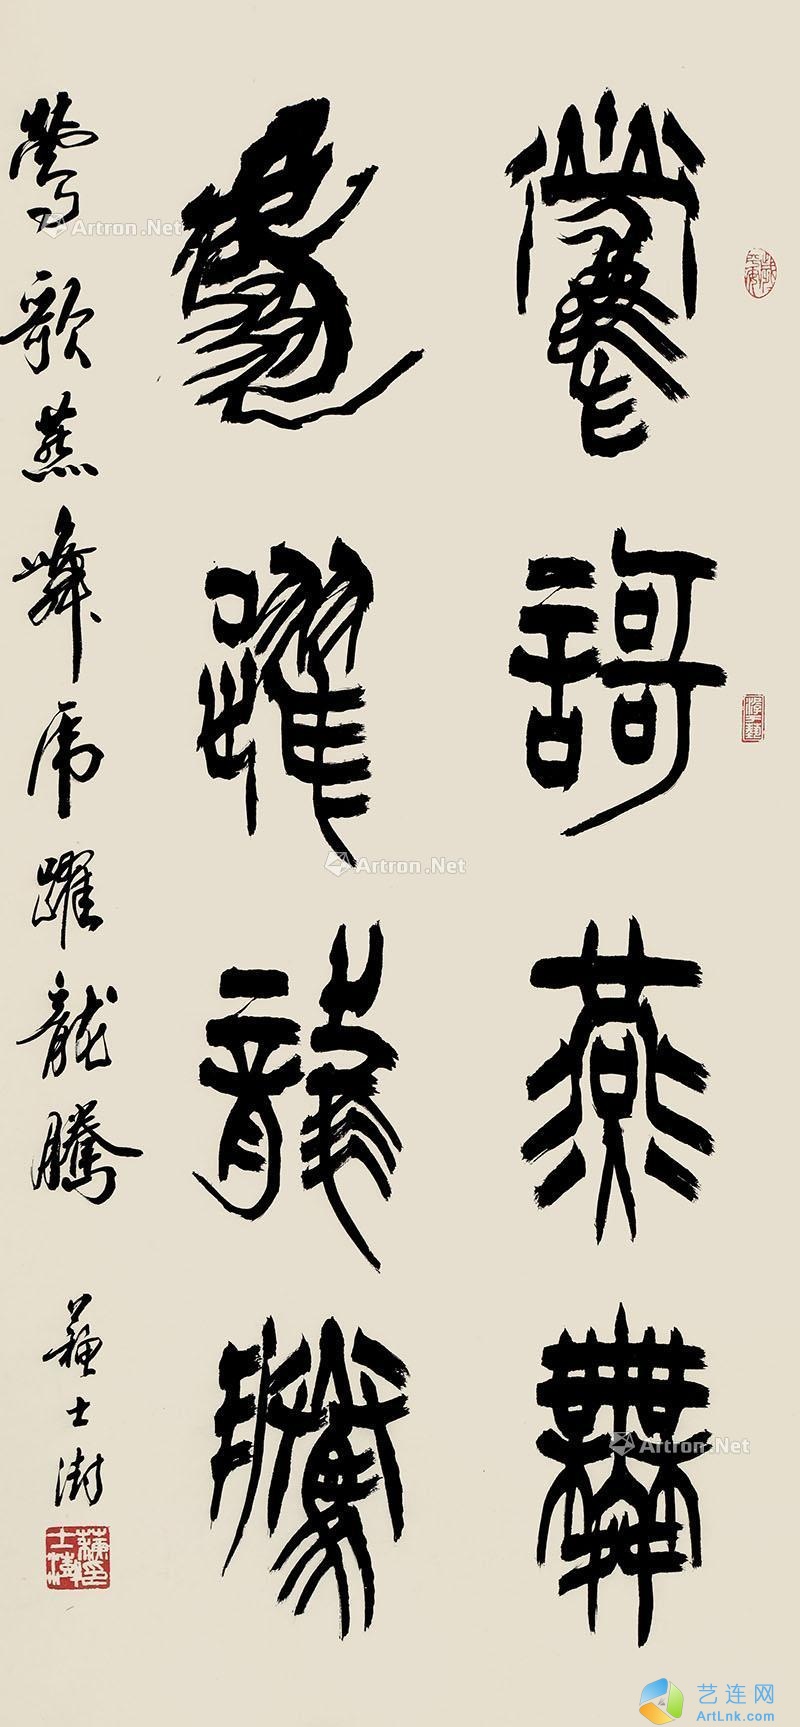 鶯謌燕舞
虎躍龍騰
鶯歌燕舞虎躍龍騰 蘇士澍
Artron.Net
Artron.Net
Artron.Net
艺连网
ArtLnk.com